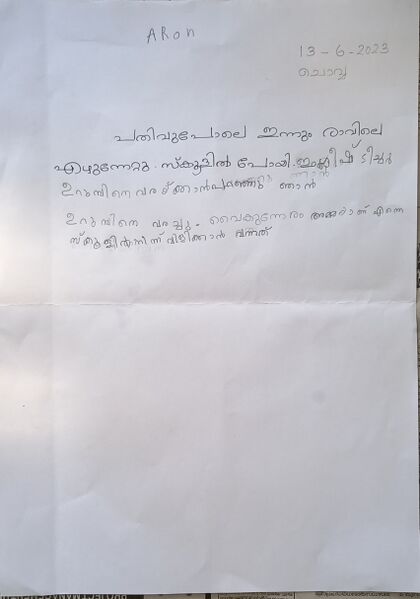 ARon
13-6-2023
ചൊവ്വ
പതിവുപോലെ ഇന്നും രാവിലെ
എഴുന്നേറ്റു. സ്കൂളിൽ പോയി. ഇംഗ്ലീഷ് ടീച്ചർ
ഉറുമ്പിനെ വരയ്ക്കാൻ പറഞ്ഞു ഞാൻ
ഉറുമ്പിനെ വരച്ചു. വൈകുന്നേരം എന്നെ
വന്നത്